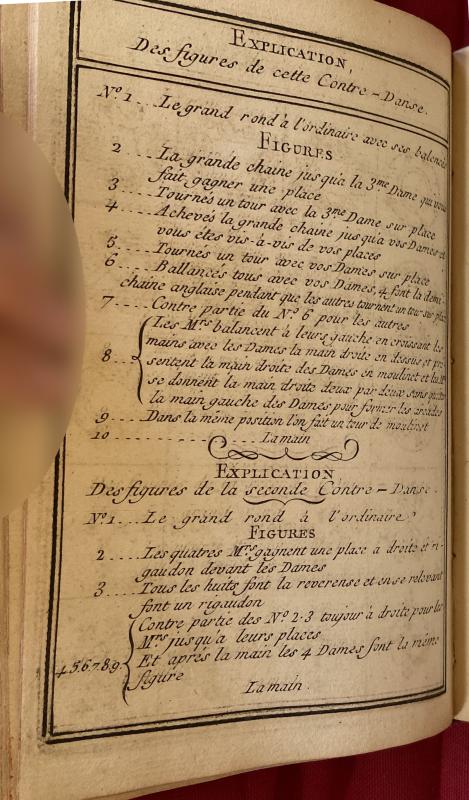 EXPLICATION,
Des figures de cette Contre-Danse.
Nº.1.. Le grand rond à l'ordinaire avec ses balencés
FIGURES
2 .... La grande chaine jusqu'a la 3.me Dame qui vous
fait gagner une place
3 .... Tournés un tour avec la 3.me Dame sur place
4 .... Achevés la grande chaine jusqu'a vos Dames et
vous êtes vis-à-vis de vos places
5 .... Tournés un tour avec vos Dames sur place
6 .... Ballancés tous avec vos Dames, 4 font la demi-
chaine anglaise pendant que les autres tournent un tour sur place
7 .... Contre partie du Nº. 6 pour les autres
8 .. Les M.rs balancent à leurs gauche en croissant les
mains avec les Dames la main droite en dessus, et pré-
sentent la main droite des Dames en moulinet et les M.rs
se donnent la main droite deux par deux sans quitter
la main gauche des Dames pour former les arcades
9 .... Dans la même position l'on fait un tour de moulinet
10 .................. La main
EXPLICATION
Des figures de la seconde Contre-Danse.
Nº.1... Le grand rond à l'ordinaire
FIGURES
2 .... Les quatres M.rs gagnent une place a droite et ri-
gaudon devant les Dames
3 .... Tous les huits font la reverense et en se relevant
font un rigaudon
4.5.6.7.8.9. Contre partie des Nº. 2.3 toujour à droite pour les
M.rs jusqu'a leurs places
Et aprés la main les 4 Dames font la même
figure
La main.